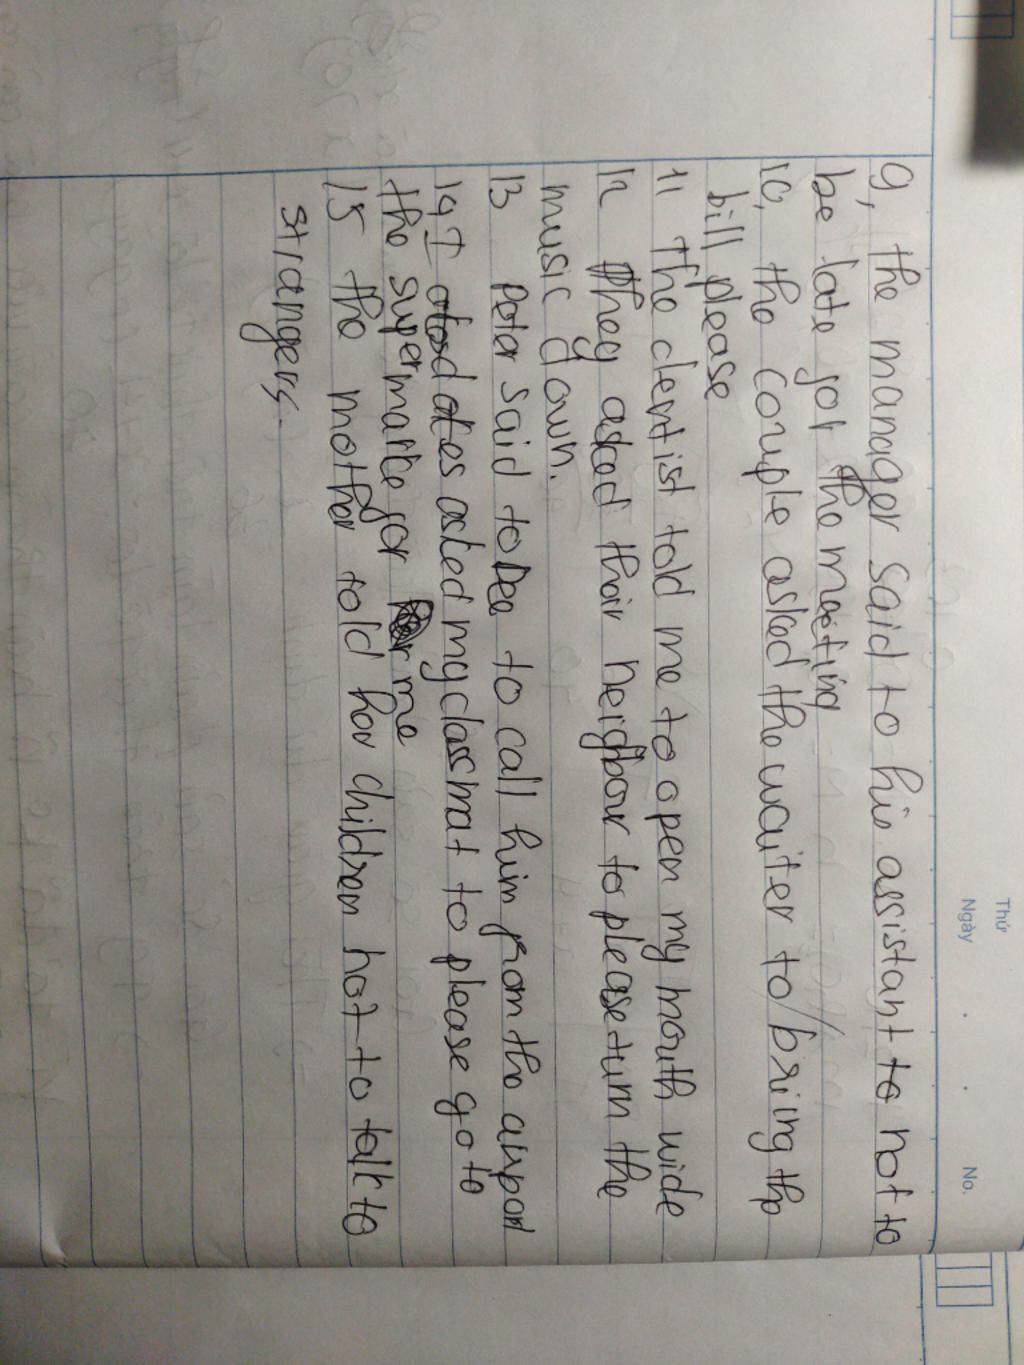 Thứ
Ngày . . No.
9, the manager said to his assistant to not to
be late for the meeting
10, the couple asked the waiter to bring the
bill please
11 the dentist told me to open my mouth wide
12 they asked their neighbour to please turn the
music down.
13 Peter said to Dee to call him from the airport
14 I asked my classmat to please go to
the supermarke for me
15 the mother told her children not to talk to
strangers.